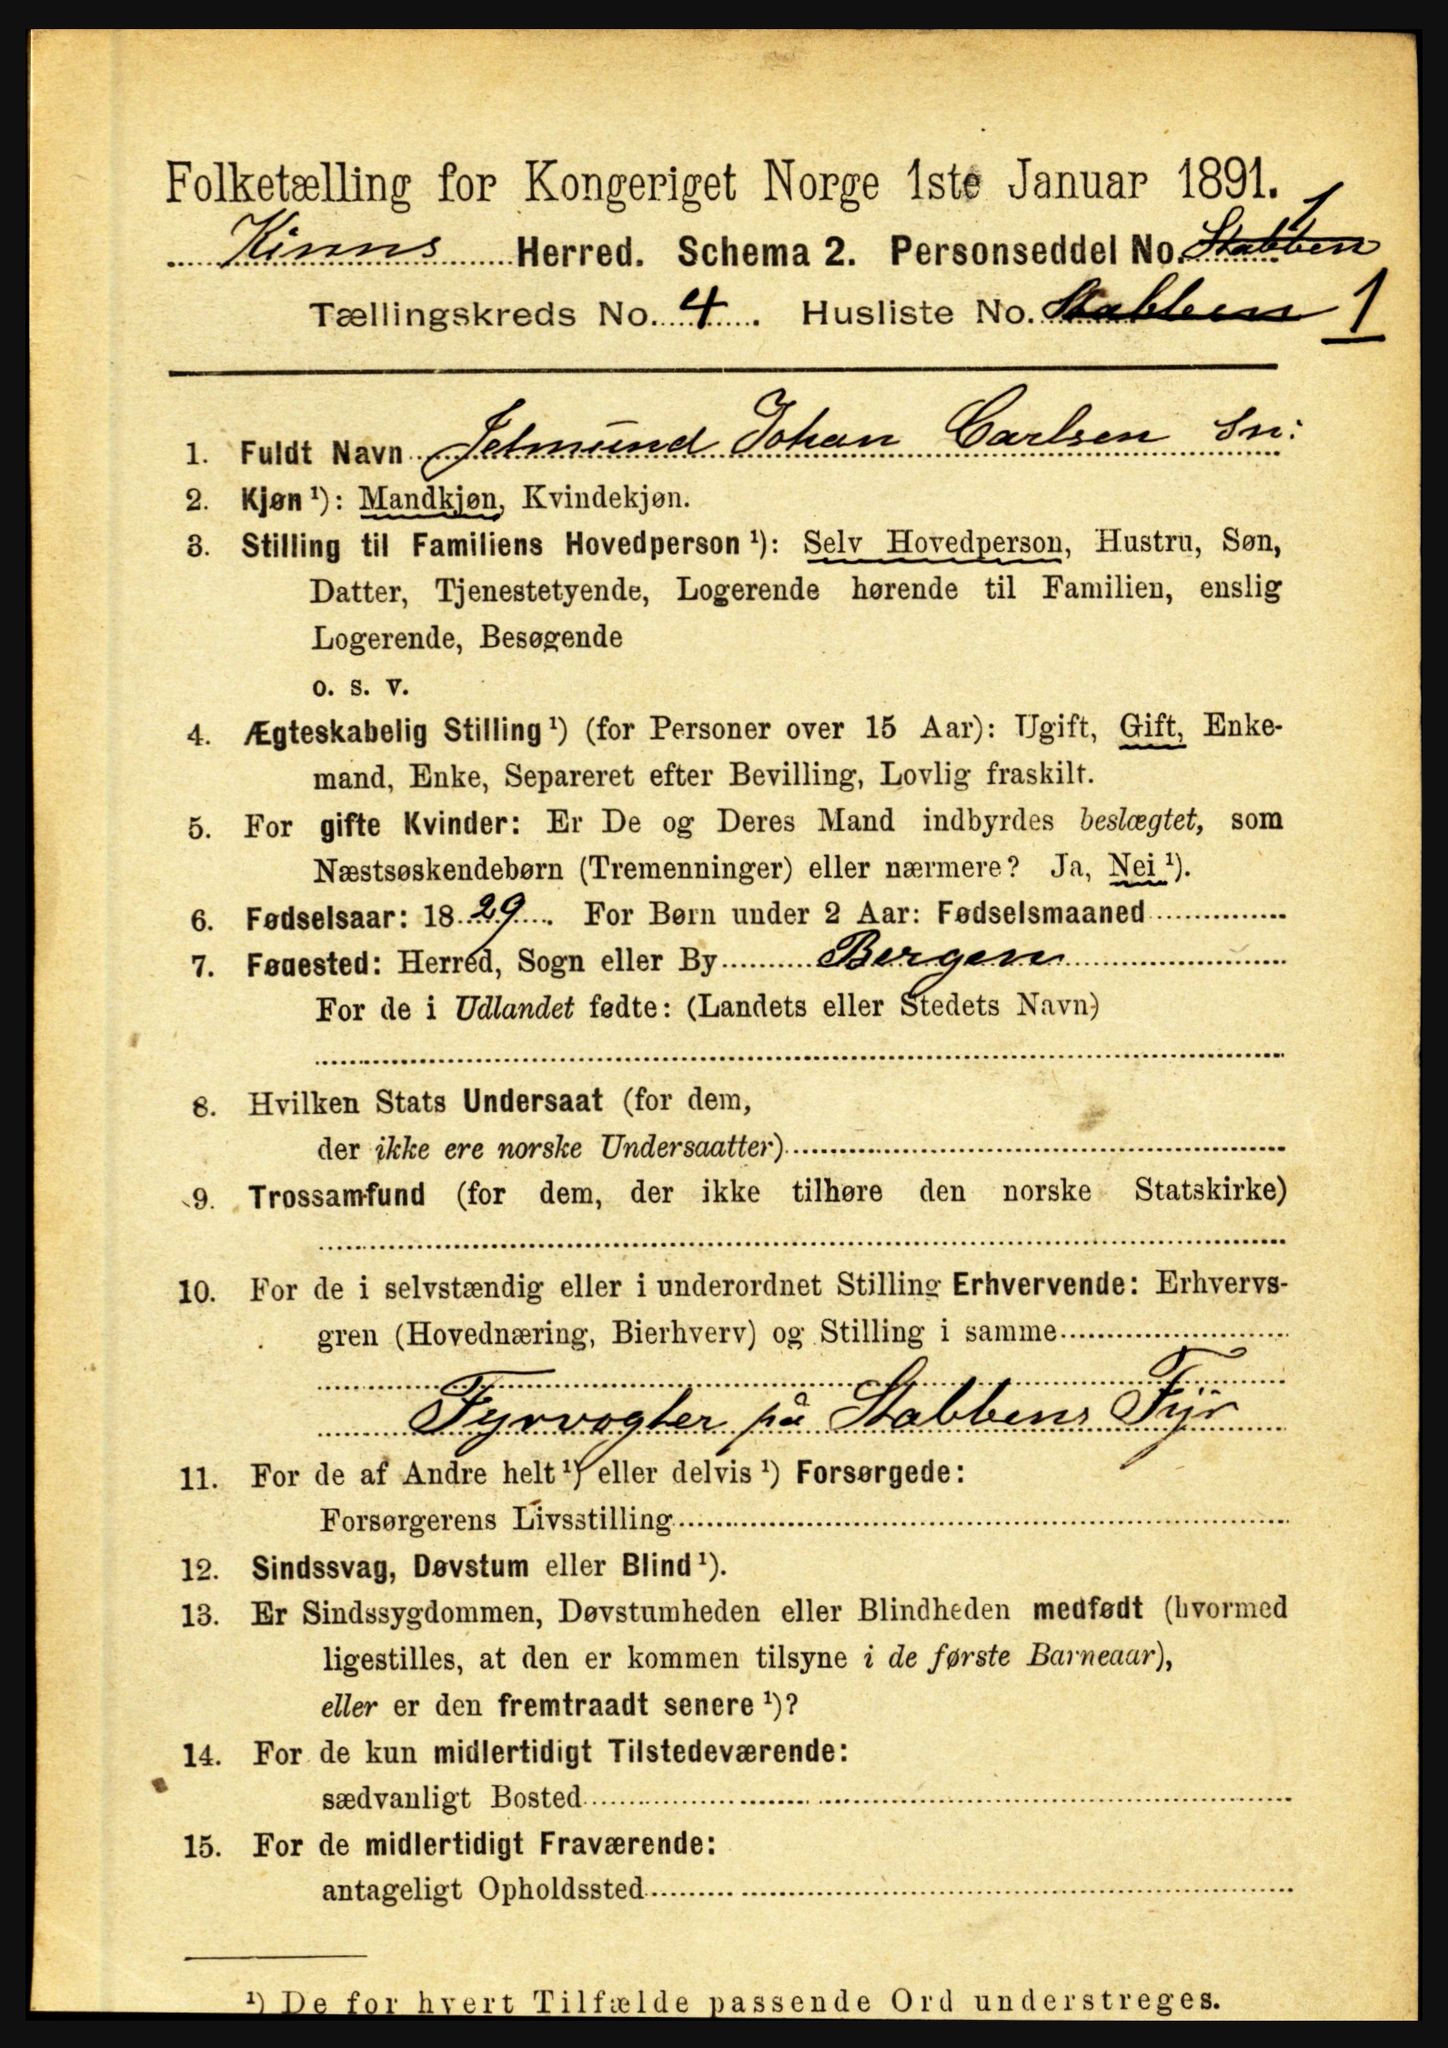 Folketælling for Kongeriget Norge 1ste Januar 1891.
Kinns Herred. Schema 2. Personseddel No. Stabben 1
Tællingskreds No. 4. Husliste No. Stabben 1
1. Fuldt Navn Jetmund Johan Carlsen Sn:
2. Kjøn ¹): Mandkjøn, Kvindekjøn.
3. Stilling til Familiens Hovedperson ¹): Selv Hovedperson, Hustru, Søn,
Datter, Tjenestetyende, Logerende hørende til Familien, enslig
Logerende, Besøgende
o. s. v.
4. Ægteskabelig Stilling ¹) (for Personer over 15 Aar): Ugift, Gift, Enke-
mand, Enke, Separeret efter Bevilling, Lovlig fraskilt.
5. For gifte Kvinder: Er De og Deres Mand indbyrdes beslægtet, som
Næstsøskendebørn (Tremenninger) eller nærmere? Ja, Nei ¹).
6. Fødselsaar: 1829. For Børn under 2 Aar: Fødselsmaaned
7. Fødested: Herred, Sogn eller By Bergen
For de i Udlandet fødte: (Landets eller Stedets Navn)
8. Hvilken Stats Undersaat (for dem,
der ikke ere norske Undersaatter)
9. Trossamfund (for dem, der ikke tilhøre den norske Statskirke)
10. For de i selvstændig eller i underordnet Stilling Erhvervende: Erhvervs-
gren (Hovednæring, Bierhverv) og Stilling i samme
Fyrvogter på Stabbens Fyr
11. For de af Andre helt ¹) eller delvis ¹) Forsørgede:
Forsørgerens Livsstilling
12. Sindssvag, Døvstum eller Blind ¹).
13. Er Sindssygdommen, Døvstumheden eller Blindheden medfødt (hvormed
ligestilles, at den er kommen tilsyne i de første Barneaar),
eller er den fremtraadt senere ¹)?
14. For de kun midlertidigt Tilstedeværende:
sædvanligt Bosted
15. For de midlertidigt Fraværende:
antageligt Opholdssted
¹) De for hvert Tilfælde passende Ord understreges.